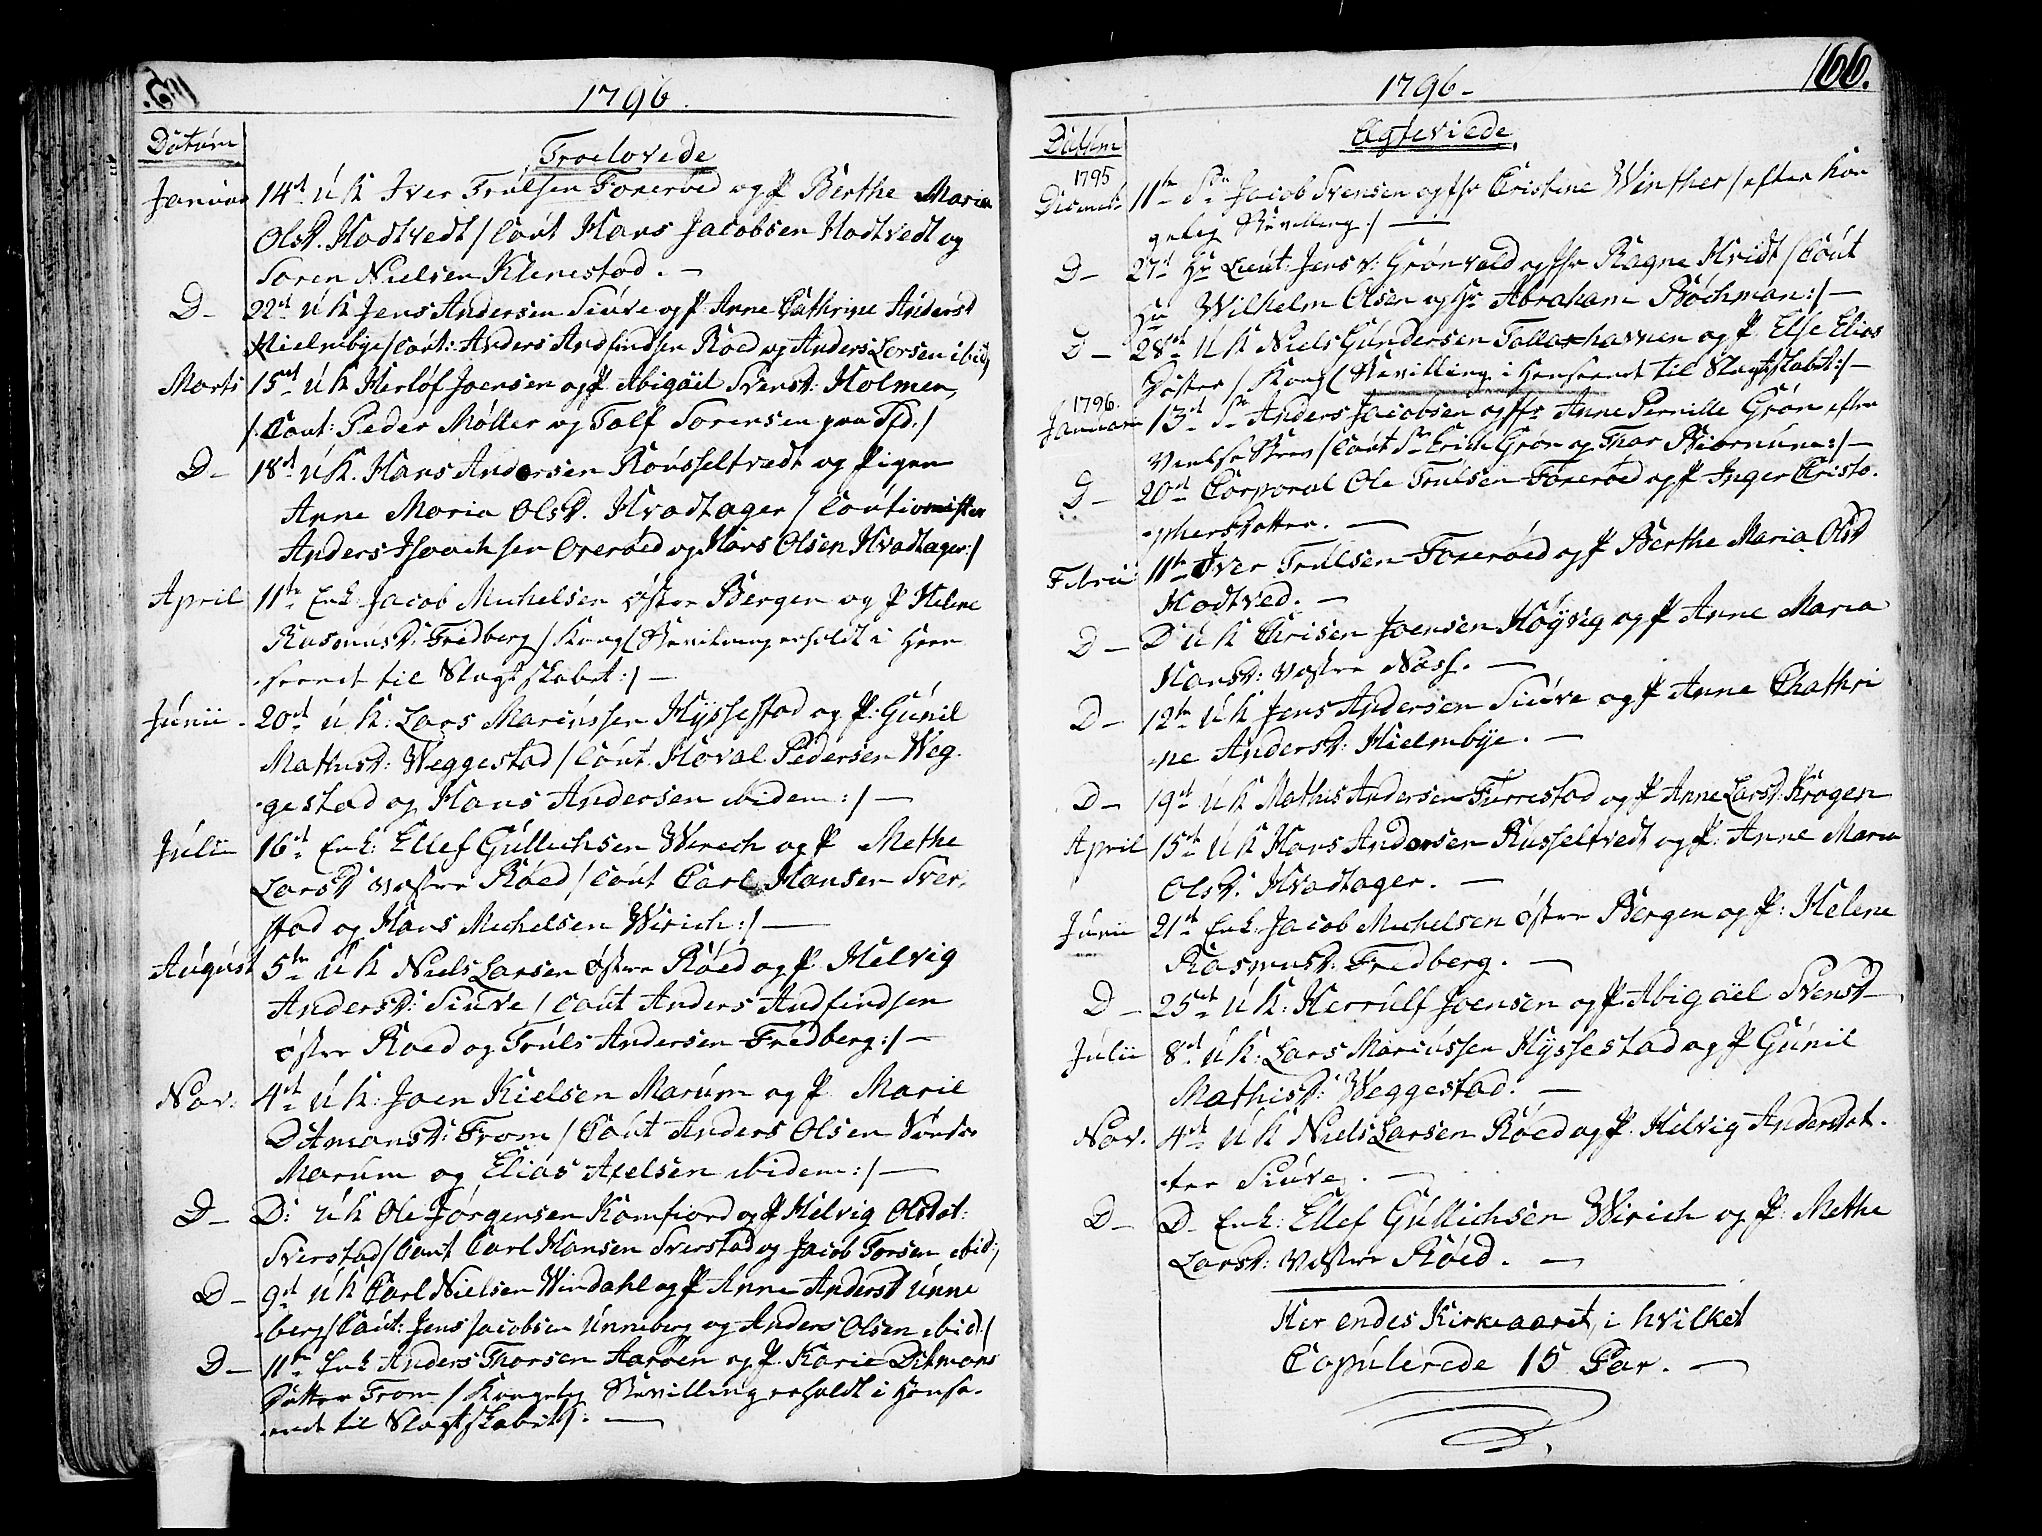 1796.
Datum
Troelovede
Januar 14de U K Iver Trulsen Foxeröed og P Berthe Maria
Olsd. Hodtvedt /Cout Hans Jacobsen Hodtvedt og
Soren Nielsen Klenestad. –
D – 22de U K Jens Andersen Siuve og P: Anne Cathrine Andersd
Hielmbye /Cout: Anders Andfindsen Röed og Anders Larsen ibid/
Marts 15de U K Herlöf Joensen og P Abigäil Svensd: Holmen,
/: Cout: Peder Møller og Tolf Sorensen paa Tid:/
D – 18de U K. Hans Andersen Rousseltvedt og Pigen
Anne Maria Olsd. Hvadtager / Cautionister
Anders Isaachsen Oxeröed og Hans Olsen Hvadtager:/
April 11te Enk: Jacob Michelsen østre Bergen og P Helene
Rasmusd: Fredberg /Kongl Bevilning erholdt i Hen-
seende til Slagtskabet:/ –
Junii – 20de U K: Lars Marcussen Hyssestad og P: Gunil
Mathisd: Weggestad /Cout. Hoval Pedersen Weg-
gestad og Hans Andersen ibidem:/ –
Julii 16de Enk: Ellef Gullichsen Wirich og P Methe
Larsd vestre Röed / Cout Carl Hansen Sver-
stad og Hans Michelsen Wirich:/ –
August 5te U K Niels Larsen östre Röed og P. Helvig
Andersd: Siuve /Cout Anders Andfindsen
östre Roed og Truls Andersen Fredberg:/ –
Nov: 4de U K: Joen Kielsen Marum og P. Marie
Ditmansd: From / Cout Anders Olsen Söndre
Marum og Elias Axelsen ibidem:/ –
D – D: U K Ole Jörgensen Kamfiord og P Helvig Olsdat:
Sverstad /Cout Carl Hansen Sverstad og Jacob Torsen ibid:/
D – 9de U K Carl Nielsen Wirdahl og P Anne Andersd Unne
-berg /Cout: Jens Jacobsen Unneberg og Anders Olsen ibid:/
D – 11te Enk Anders Thorsen Aaröen og P. Karie Ditmans
Datter From / Kongelig Bevilling erholdt i Hense-
ende til Slagtskabet/: –
1796 –
166.
Datum
Ægteviede
1795
Decemb: 11te Sr Jacob Svensen og Jfr Cristine Winther /efter Kon
gelig Bevilling:/ –
D – 27de Hr Lieut: Jens v: Grönvold og Jfr Ragne Hvidt /Cout
Hr Wilhelm Olsen og Hr Abraham Böchman:/ –
D – 28de U K Niels Gundersen Tallaxhavnen og P. Else Elias
Datter / Kongl Bevilling i Henseende til Slagtskabet:/ –
1796.
Januarii 13de Sr Anders Jacobsen og Jfr Anne Pernille Grön efter
Vielse Brev /Cout Sr Erich Grön og Thor Biörnum:/ –
D – 20de Corporal Ole Trulsen Foxeröed og P Inger Cristo-
-phersdatter. –
Febru: 11te Iver Trulsen Foxeröed og P Berthe Maria Olsd
Hodtved. –
D – D U K Crisen Joensen Höyvig og P Anne Maria
Hansd: vestre Næss. –
D – 12te U K Jens Andersen Siuve og P Anne Chathri
-ne Andersd: Hielmbye. –
D – 19de U K Mathis Andersen Furrestad og P Anne Larsd: Krogen
April 15de U K Hans Andersen Russeltvedt og P: Anne Maria
Olsd: Hvadtager. –
Junii 21de Enk: Jacob Michelsen östre Bergen og P: Helene
Rasmusd: Fredberg. –
D – 25de U K: Herrulf Joensen og P: Abigäel Svensd –
Julii 8de U K: Lars Marcussen Hyssestad og P Gunil
Mathisd: Weggestad. –
Nov. 4de U K Niels Larsen Röed og P. Helvig Andersdat-
-ter Siuve. –
D – D. Enk: Ellef Gullichsen Wirich og P: Methe
Larsd: vestre Röed. –
Her endes Kirkeaaret, i hvilket
Copulerede 15 Par. –